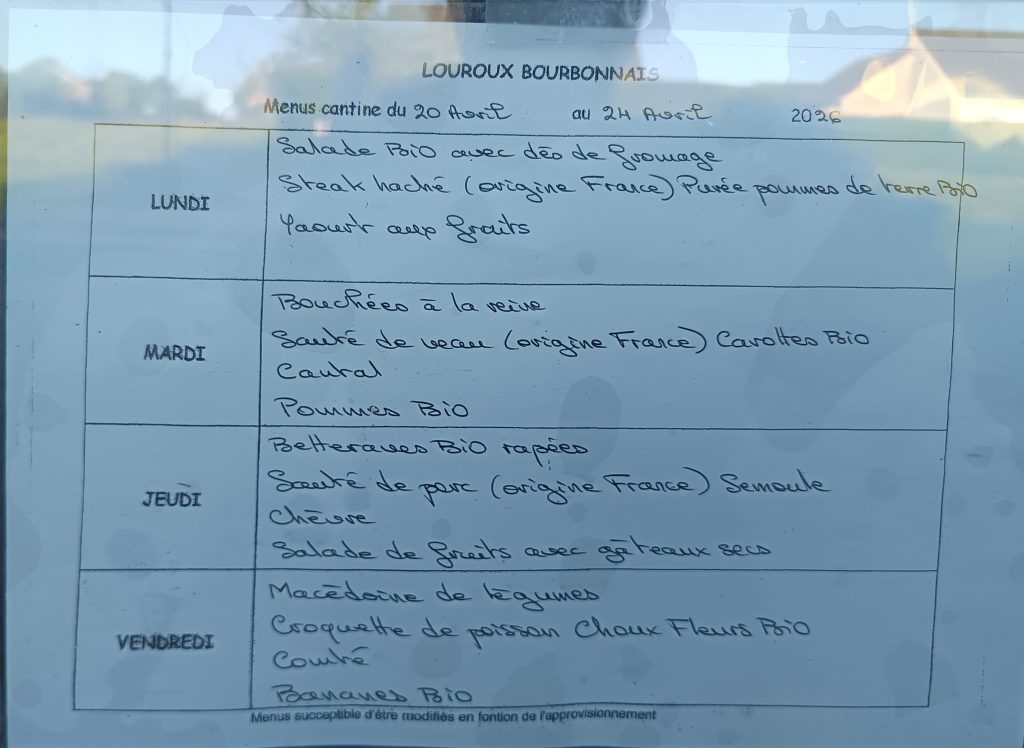 LOUROUX BOURBONNAIS
Menus cantine du 20 Avril au 24 Avril 2026
LUNDI
Salade Bio avec dés de fromage
Steak haché (origine France) Purée pommes de terre Bio
Yaourt aux fruits
MARDI
Bouchées à la reine
Sauté de veau (origine France) Carottes Bio
Cantal
Pommes Bio
JEUDI
Betteraves Bio rapées
Sauté de porc (origine France) Semoule
Chèvre
Salade de fruits avec gâteaux secs
VENDREDI
Macédoine de légumes
Croquette de poisson Choux Fleurs Bio
Comté
Bananes Bio
Menus succeptible d'être modifiés en fontion de l'approvisionnement